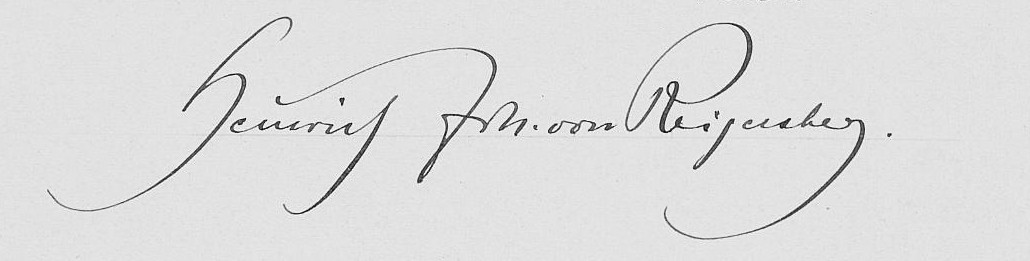 Heinrich Frh. von Reigersberg.